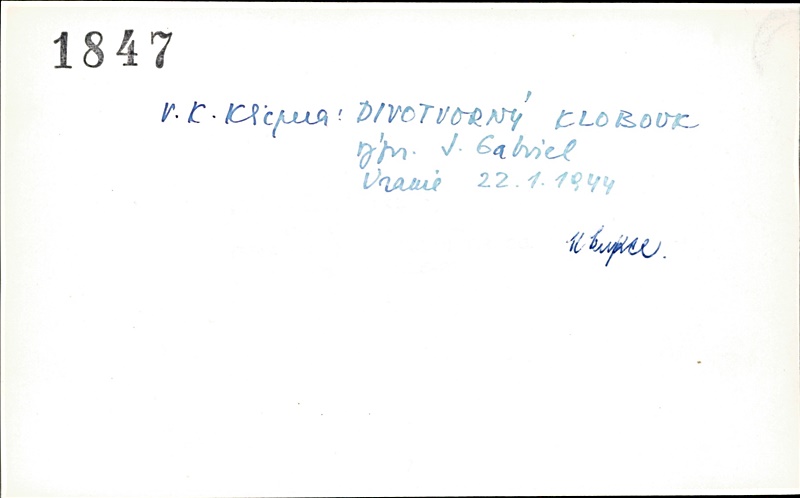 1847
V. K. Klicpera: DIVOTVORNÝ KLOBOUK
výpr. J. Gabriel
Vrané 22.1.1944